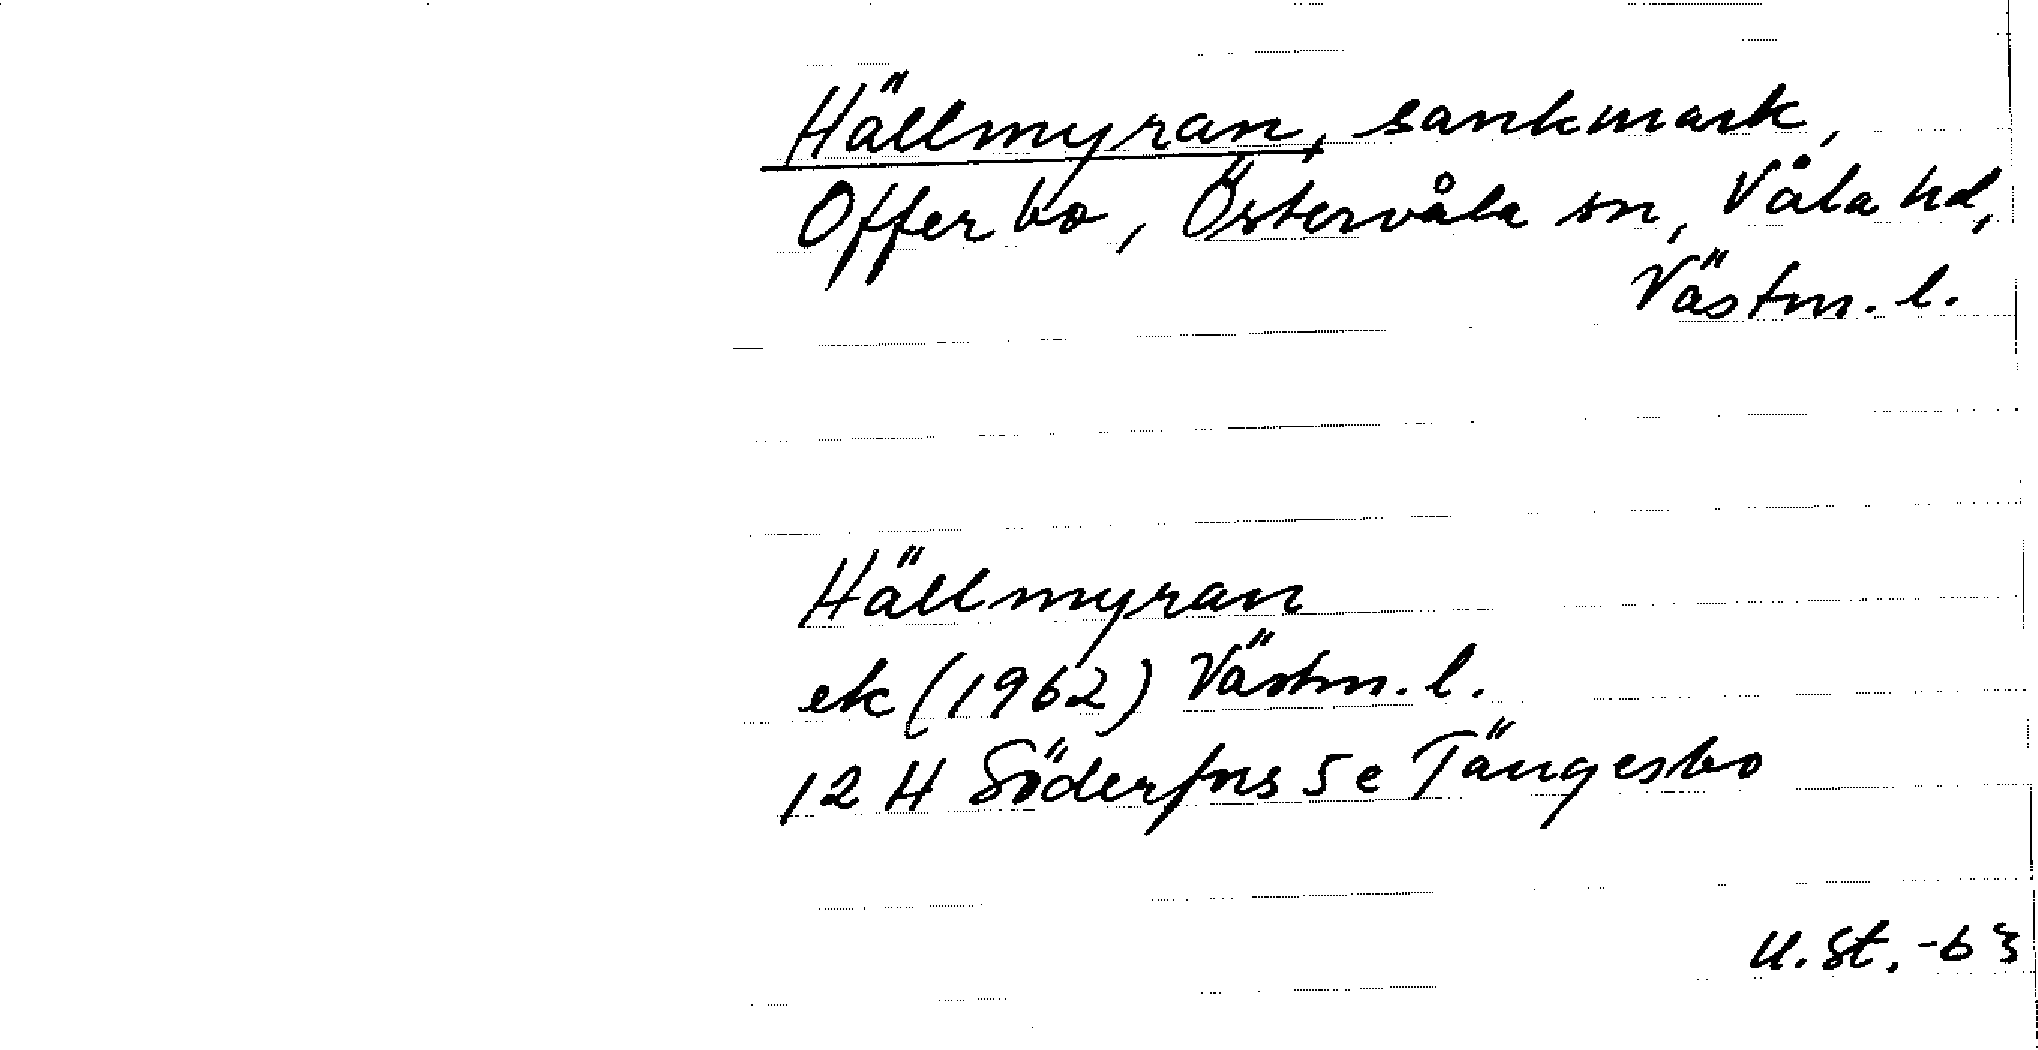 Hällmyran, sankmark,
Offerbo, Östervåla sn, Våla hd,
Västm. l.
Hällmyran
ek (1962) Västm. l.
12 H Söderfors 5 c Tängesbo
U. St. -63